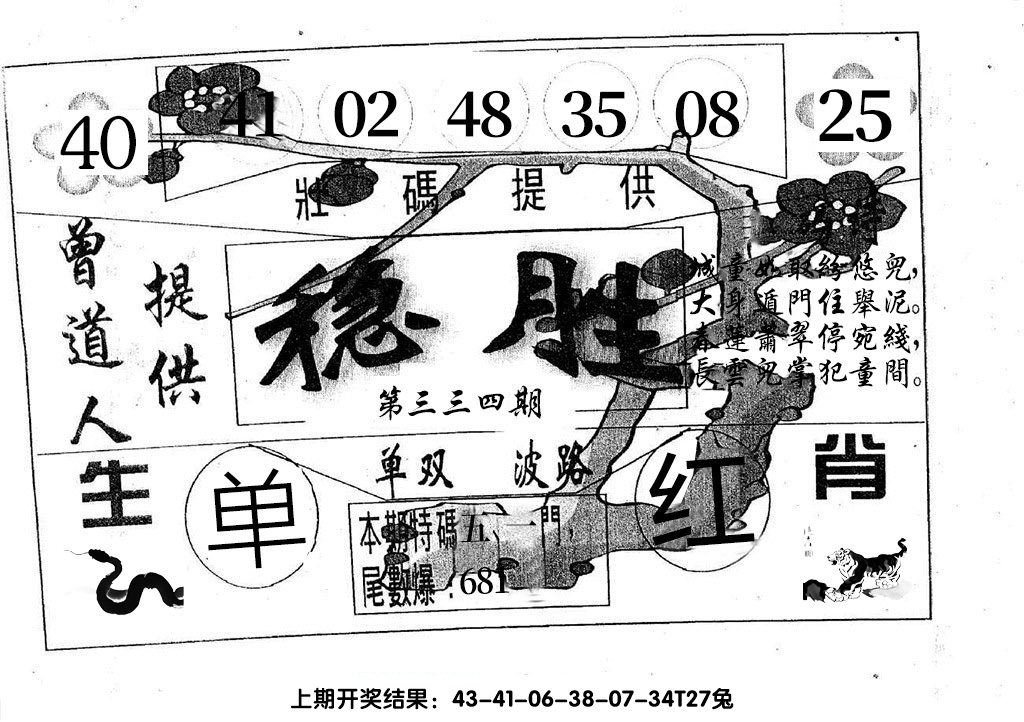 40 41 02 48 35 08 25
壯碼提供
曾道人
提供
稳胜
第三三四期
大身遁門住舉泥。
春蓮蕭翠停宛綫,
張雲兒掌犯童間。
单双 波路
生肖
单
红
本期特碼五、一門,
尾數爆:681
上期开奖结果：43-41-06-38-07-34T27兔